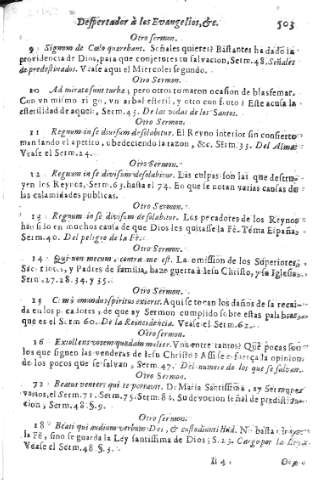 Despertador à los Evangelios, &c. 503
Otro sermon.
9 Signum de Cœlo quærebant. Señales quieres? Bastantes ha dado la
providencia de Dios, para que conjetures tu salvacion, Serm. 48. Señales
de predestinados. Vease aqui el Miercoles segundo.
Otro Sermon.
10 Admiratæ sunt turbæ; pero otros tomaron ocasion de blasfemar.
Con vn mismo riego, vn arbol esteril, y otro con fruto? Este acusa la
esterilidad de aquel:, Serm. 45. De las vidas de los Santos.
Otro Sermon.
11 Regnum in se divisum desolabitur. El Reyno interior sin concierto
mandando el apetito, obedeciendo la razon, &c. Serm. 35. Del Alma.
Vease el Serm. 24.
Otro Sermon.
12 Regnum in se divisum desolabitur. Las culpas son las que destru-
yen los Reynos, Serm. 63. hasta el 74. En que se notan varias causas de
las calamidades publicas.
Otro Sermon.
13 Regnum in se divisum desolabitur. Los pecadores de los Reynos
han sido en muchos causa de que Dios les quitasse la Fè. Tema España,
Serm. 40. Del peligro de la Fè.
Otro Sermon.
14 Qui non mecum, contra me est. La omission de los Superiores,
y Padres de familia, haze guerra à Jesu Christo, y su Iglesia,
Serm. 27. 28. 34. y 35.
Otro Sermon.
15 spiritus exierit. Aqui se tocan los daños de la recai-
da en los pecadores, de que ay Sermon cumplido sobre estas palabras,
que es el Serm 60. De la Reincidencia. Vease el Serm. 62.
Otro sermon.
16 Extollens vocem quædam mulier. Vna entre tantos? Què pocas son
los que siguen las venderas de Jesu Christo? Assi se esfuerça la opinion
de los pocos que se salvan, Serm. 47. Del numero de los que se salvan.
Otro Sermon.
Beatus venter qui te portavit. De Maria Santissima, ay Sermones
varios, el Serm. 71. Serm. 75. Serm. 82. Su devocion señal de predestina-
cion, Serm. 48. §. 9.
Otro sermon.
18 Beati qui audiunt verbum Dei, & custodiunt illud. N basta
la Fè, sino se guarda la Ley santissima de Dios; S. 23. Cargo por la Ley.
Vease el Serm. 48 §. 5.
Ii 4